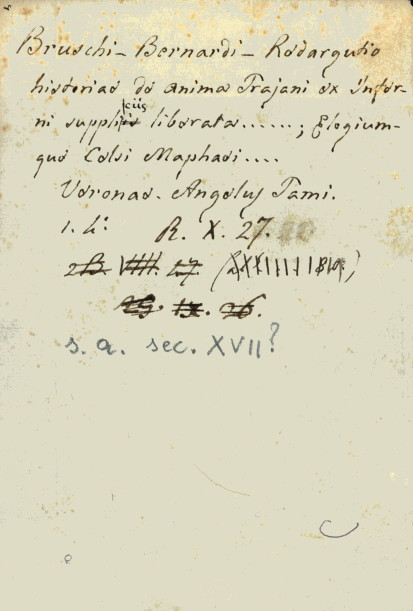 Bruschi - Bernardi - Redargutio
historiae de anima Trajani ex infer-
ni suppliciis liberata......; Elogium-
que Celsi Maphaei....
Veronae. Angelus Tami.
R. X. 27.
s. a. sec. XVII?